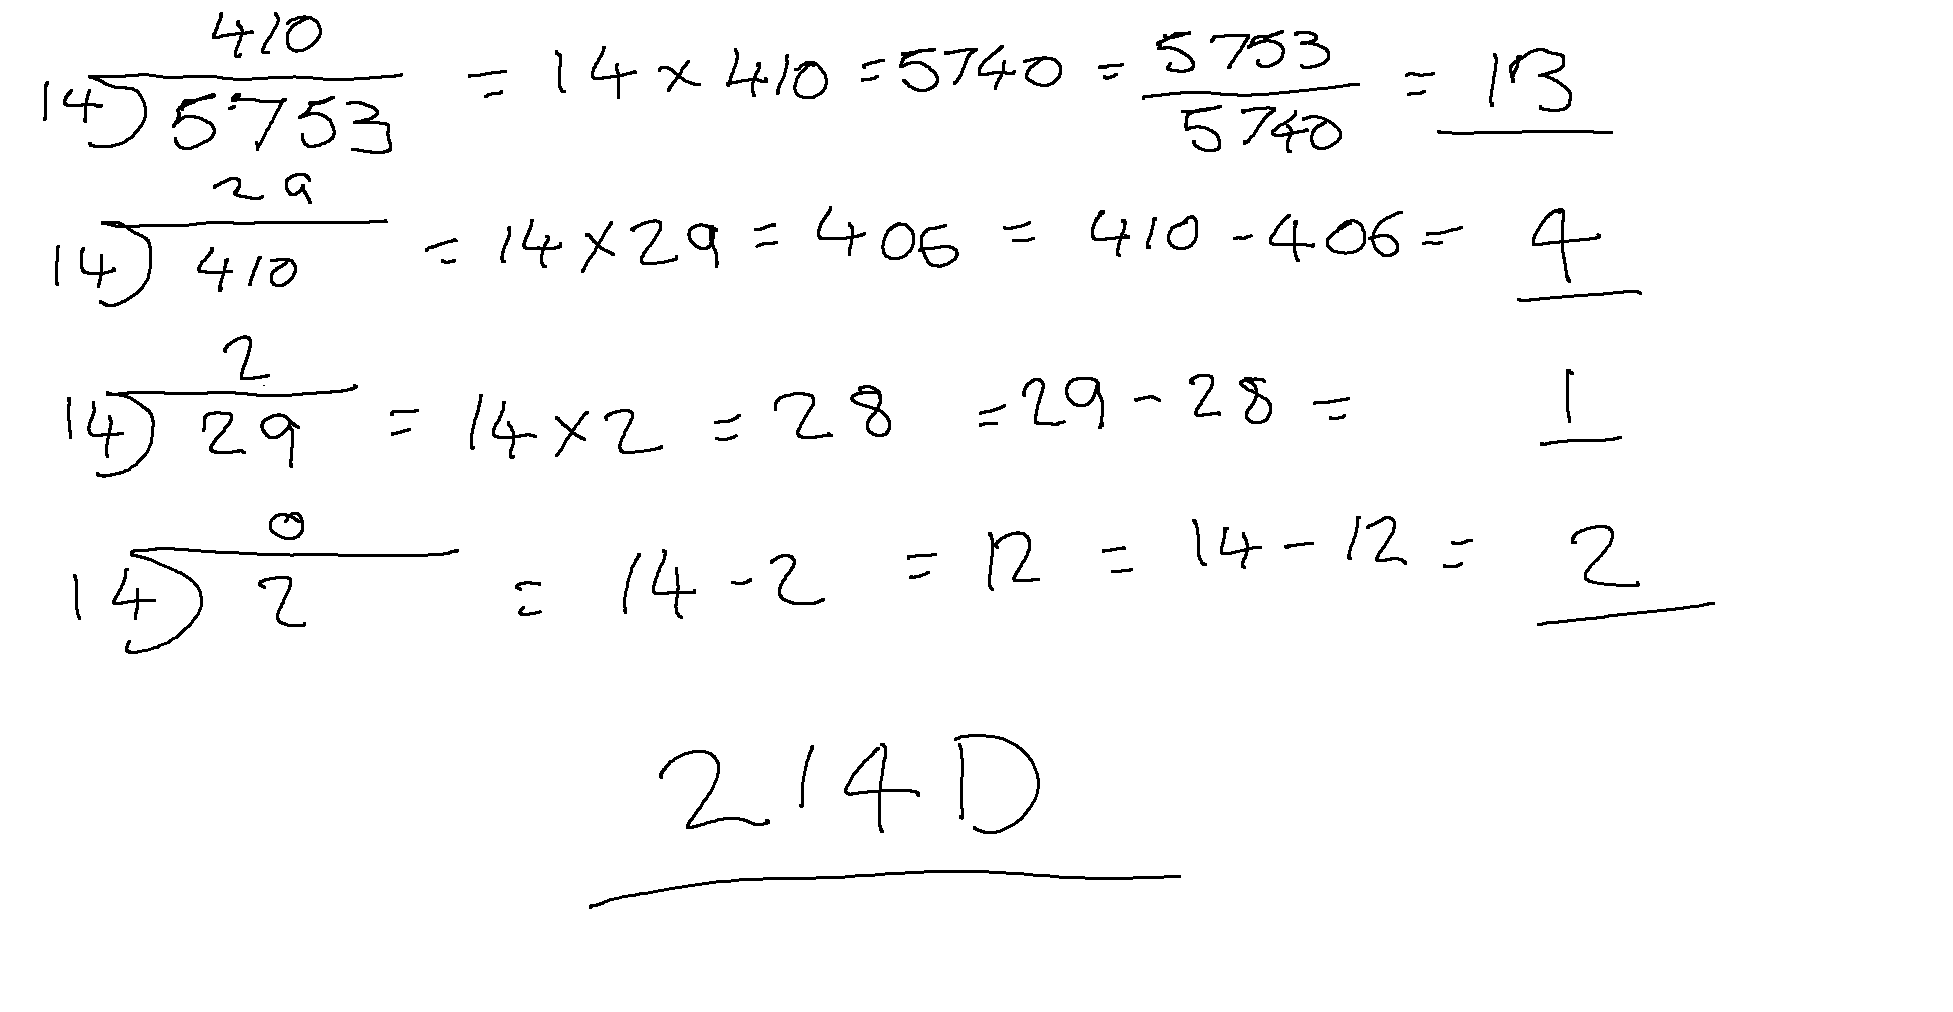 410
14)5753 = 14 × 410 = 5740 = 5753/5740 = 13
29
14)410 = 14 × 29 = 406 = 410 - 406 = 4
2
14)29 = 14 × 2 = 28 = 29 - 28 = 1
0
14)2 = 14 - 2 = 12 = 14 - 12 = 2
214D